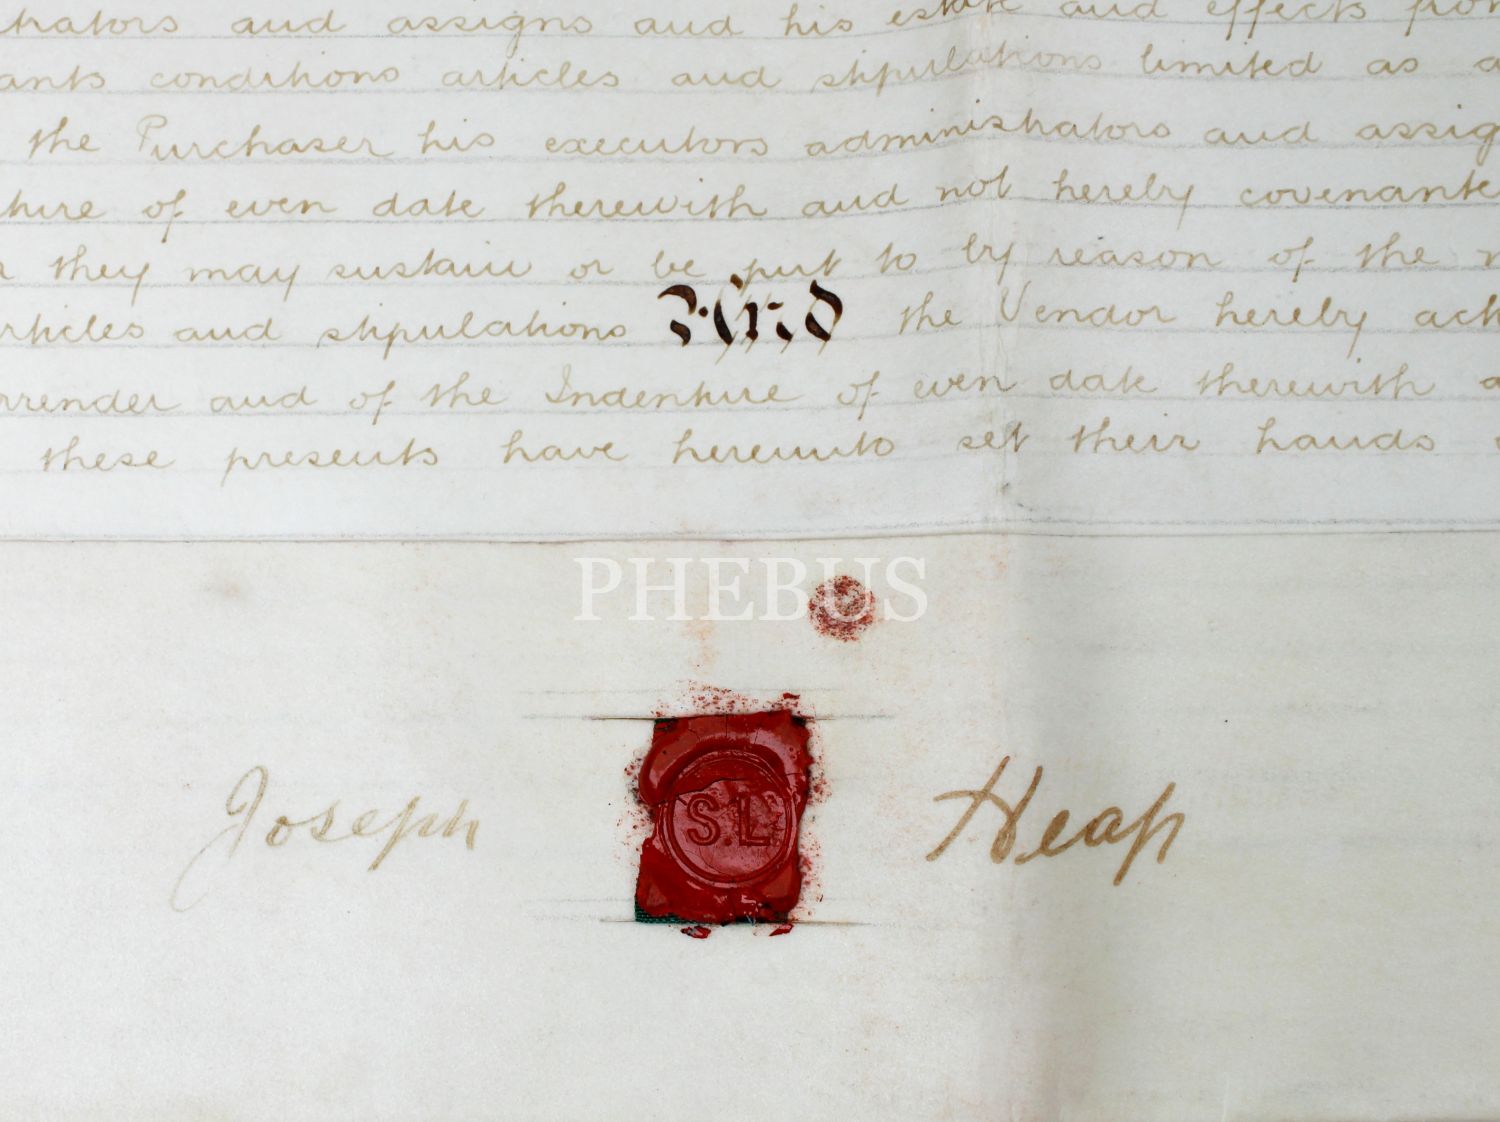 and assigns and his estate and effects
conditions articles and stipulations limited as
the Purchaser his executors administrators and
of even date therewith and not hereby
they may sustain or be put to by reason of the
and stipulations And the Vendor hereby
and of the Indenture of even date therewith
these presents have hereunto set their hands
PHEBUS
S.L
Joseph Heap